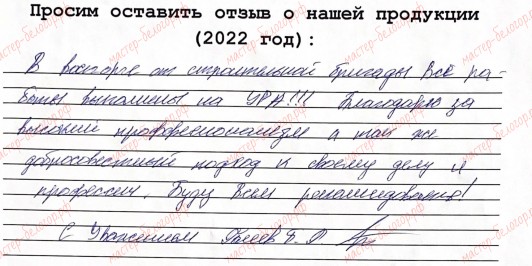 Просим оставить отзыв о нашей продукции
(2022 год):
В восторге от строительной бригады Все ра-
боты выполнены на УРА!!! Благодарю за
высокий профессионализм а так же
добросовестный подход к своему делу и
профессии. Буду Всем рекомендовать!
С Уважением
мастер-белогор.рф